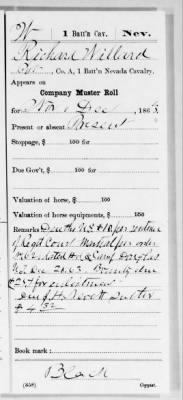 W | 1 Batt'n Cav. | Nev.
Richard Willard
Pvt, Co. A, 1 Batt'n Nevada Cavalry.
Appears on
Company Muster Roll
for Nov & Dec, 1863.
Present or absent Present
Stoppage, $ 100 for
Due Gov't, $ 100 for
Valuation of horse, $ 100
Valuation of horse equipments, $ 100
Remarks Due the U.S. $10 per sentence
of Regtl Court Martial per order
No. dated Hd Camp Douglas
Dec 26. 63. Bounty due
$25 for enlistment
Due H.
$4
Book mark:
Black
(358) Copyist.